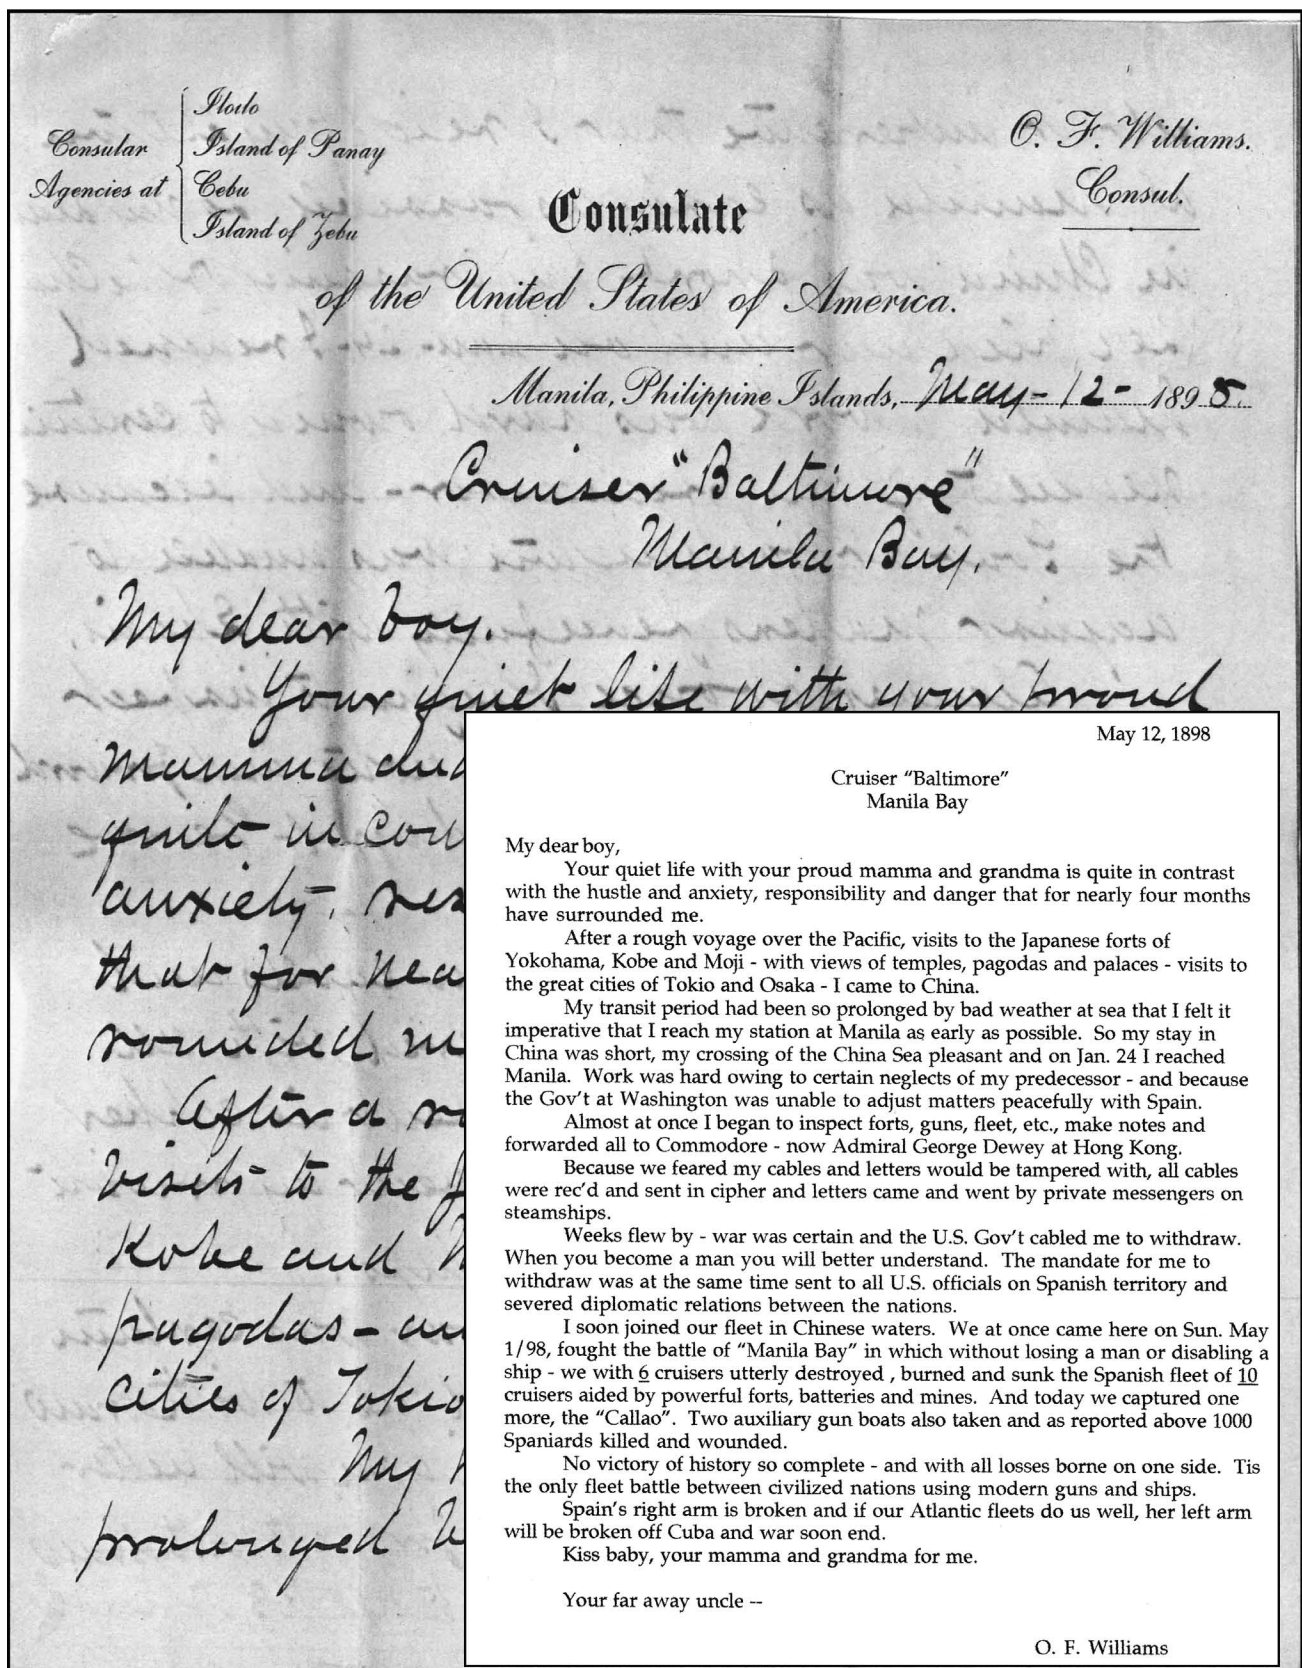 Consular Agencies at
Iloilo
Island of Panay
Cebu
Island of Zebu
O. F. Williams.
Consul.
Consulate
of the United States of America.
Manila, Philippine Islands, May - 12 - 1898.
Cruiser "Baltimore"
Manila Bay.
My dear boy.
Your quiet life with your proud
mamma and
quite in con
anxiety, res
that for nea
rounded me
After a ro
visits to the f
Kobe and M
pagodas - an
cities of Tokio
My t
prolonged b
May 12, 1898
Cruiser "Baltimore"
Manila Bay
My dear boy,
Your quiet life with your proud mamma and grandma is quite in contrast
with the hustle and anxiety, responsibility and danger that for nearly four months
have surrounded me.
After a rough voyage over the Pacific, visits to the Japanese forts of
Yokohama, Kobe and Moji - with views of temples, pagodas and palaces - visits to
the great cities of Tokio and Osaka - I came to China.
My transit period had been so prolonged by bad weather at sea that I felt it
imperative that I reach my station at Manila as early as possible. So my stay in
China was short, my crossing of the China Sea pleasant and on Jan. 24 I reached
Manila. Work was hard owing to certain neglects of my predecessor - and because
the Gov't at Washington was unable to adjust matters peacefully with Spain.
Almost at once I began to inspect forts, guns, fleet, etc., make notes and
forwarded all to Commodore - now Admiral George Dewey at Hong Kong.
Because we feared my cables and letters would be tampered with, all cables
were rec'd and sent in cipher and letters came and went by private messengers on
steamships.
Weeks flew by - war was certain and the U.S. Gov't cabled me to withdraw.
When you become a man you will better understand. The mandate for me to
withdraw was at the same time sent to all U.S. officials on Spanish territory and
severed diplomatic relations between the nations.
I soon joined our fleet in Chinese waters. We at once came here on Sun. May
1/98, fought the battle of "Manila Bay" in which without losing a man or disabling a
ship - we with 6 cruisers utterly destroyed , burned and sunk the Spanish fleet of 10
cruisers aided by powerful forts, batteries and mines. And today we captured one
more, the "Callao". Two auxiliary gun boats also taken and as reported above 1000
Spaniards killed and wounded.
No victory of history so complete - and with all losses borne on one side. Tis
the only fleet battle between civilized nations using modern guns and ships.
Spain's right arm is broken and if our Atlantic fleets do us well, her left arm
will be broken off Cuba and war soon end.
Kiss baby, your mamma and grandma for me.
Your far away uncle --
O. F. Williams